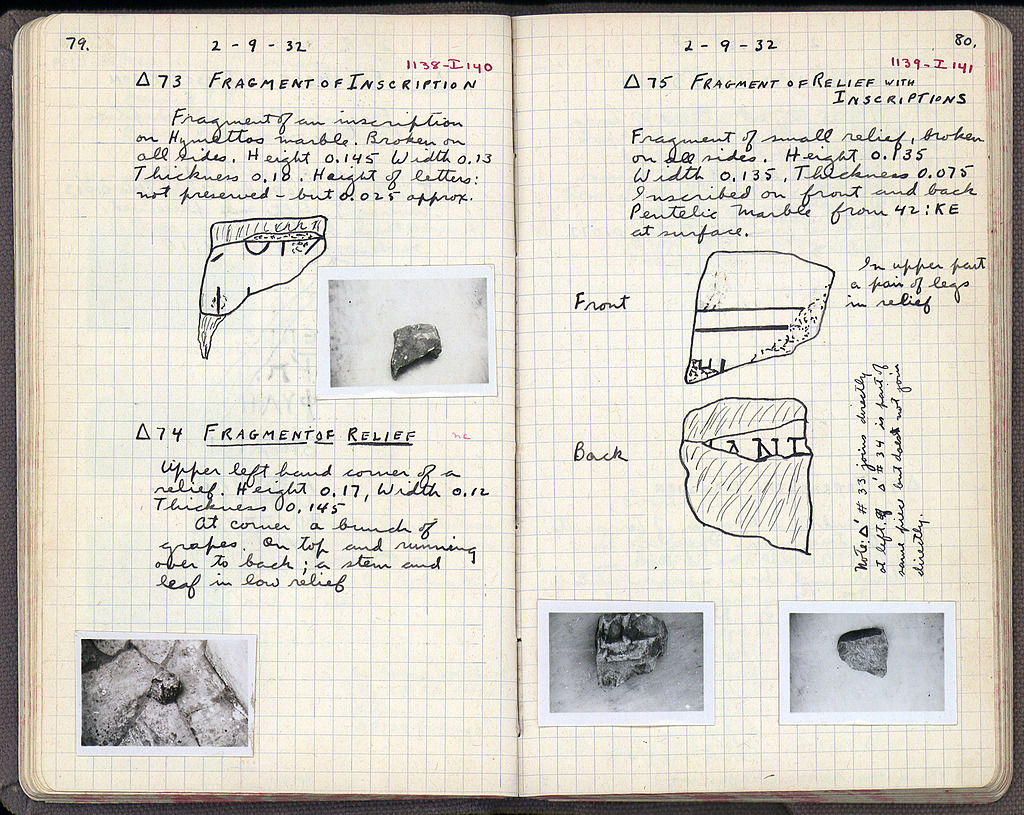 79.
2 - 9 - 32
1138-I 140
Δ 73 FRAGMENT OF INSCRIPTION
Fragment of an inscription
on Hymettos marble. Broken on
all sides. Height 0.145 Width 0.13
Thickness 0.10. Height of letters:
not preserved - but 0.025 approx.
Δ 74 FRAGMENT OF RELIEF
nc
Upper left hand corner of a
relief. Height 0.17, Width 0.12
Thickness 0.145
At corner a bunch of
grapes. On top and running
over to back; a stem and
leaf in low relief
2 - 9 - 32
80.
1139-I 141
Δ 75 FRAGMENT OF RELIEF WITH
INSCRIPTIONS
Fragment of small relief, broken
on all sides. Height 0.135
Width 0.135, Thickness 0.075
Inscribed on front and back
Pentelic Marble from 42:KE
at surface.
In upper part
a pair of legs
in relief
Front
Back
Note: Δ' # 33 joins directly
at left. Δ' # 34 is part of
same piece but does not join
directly.